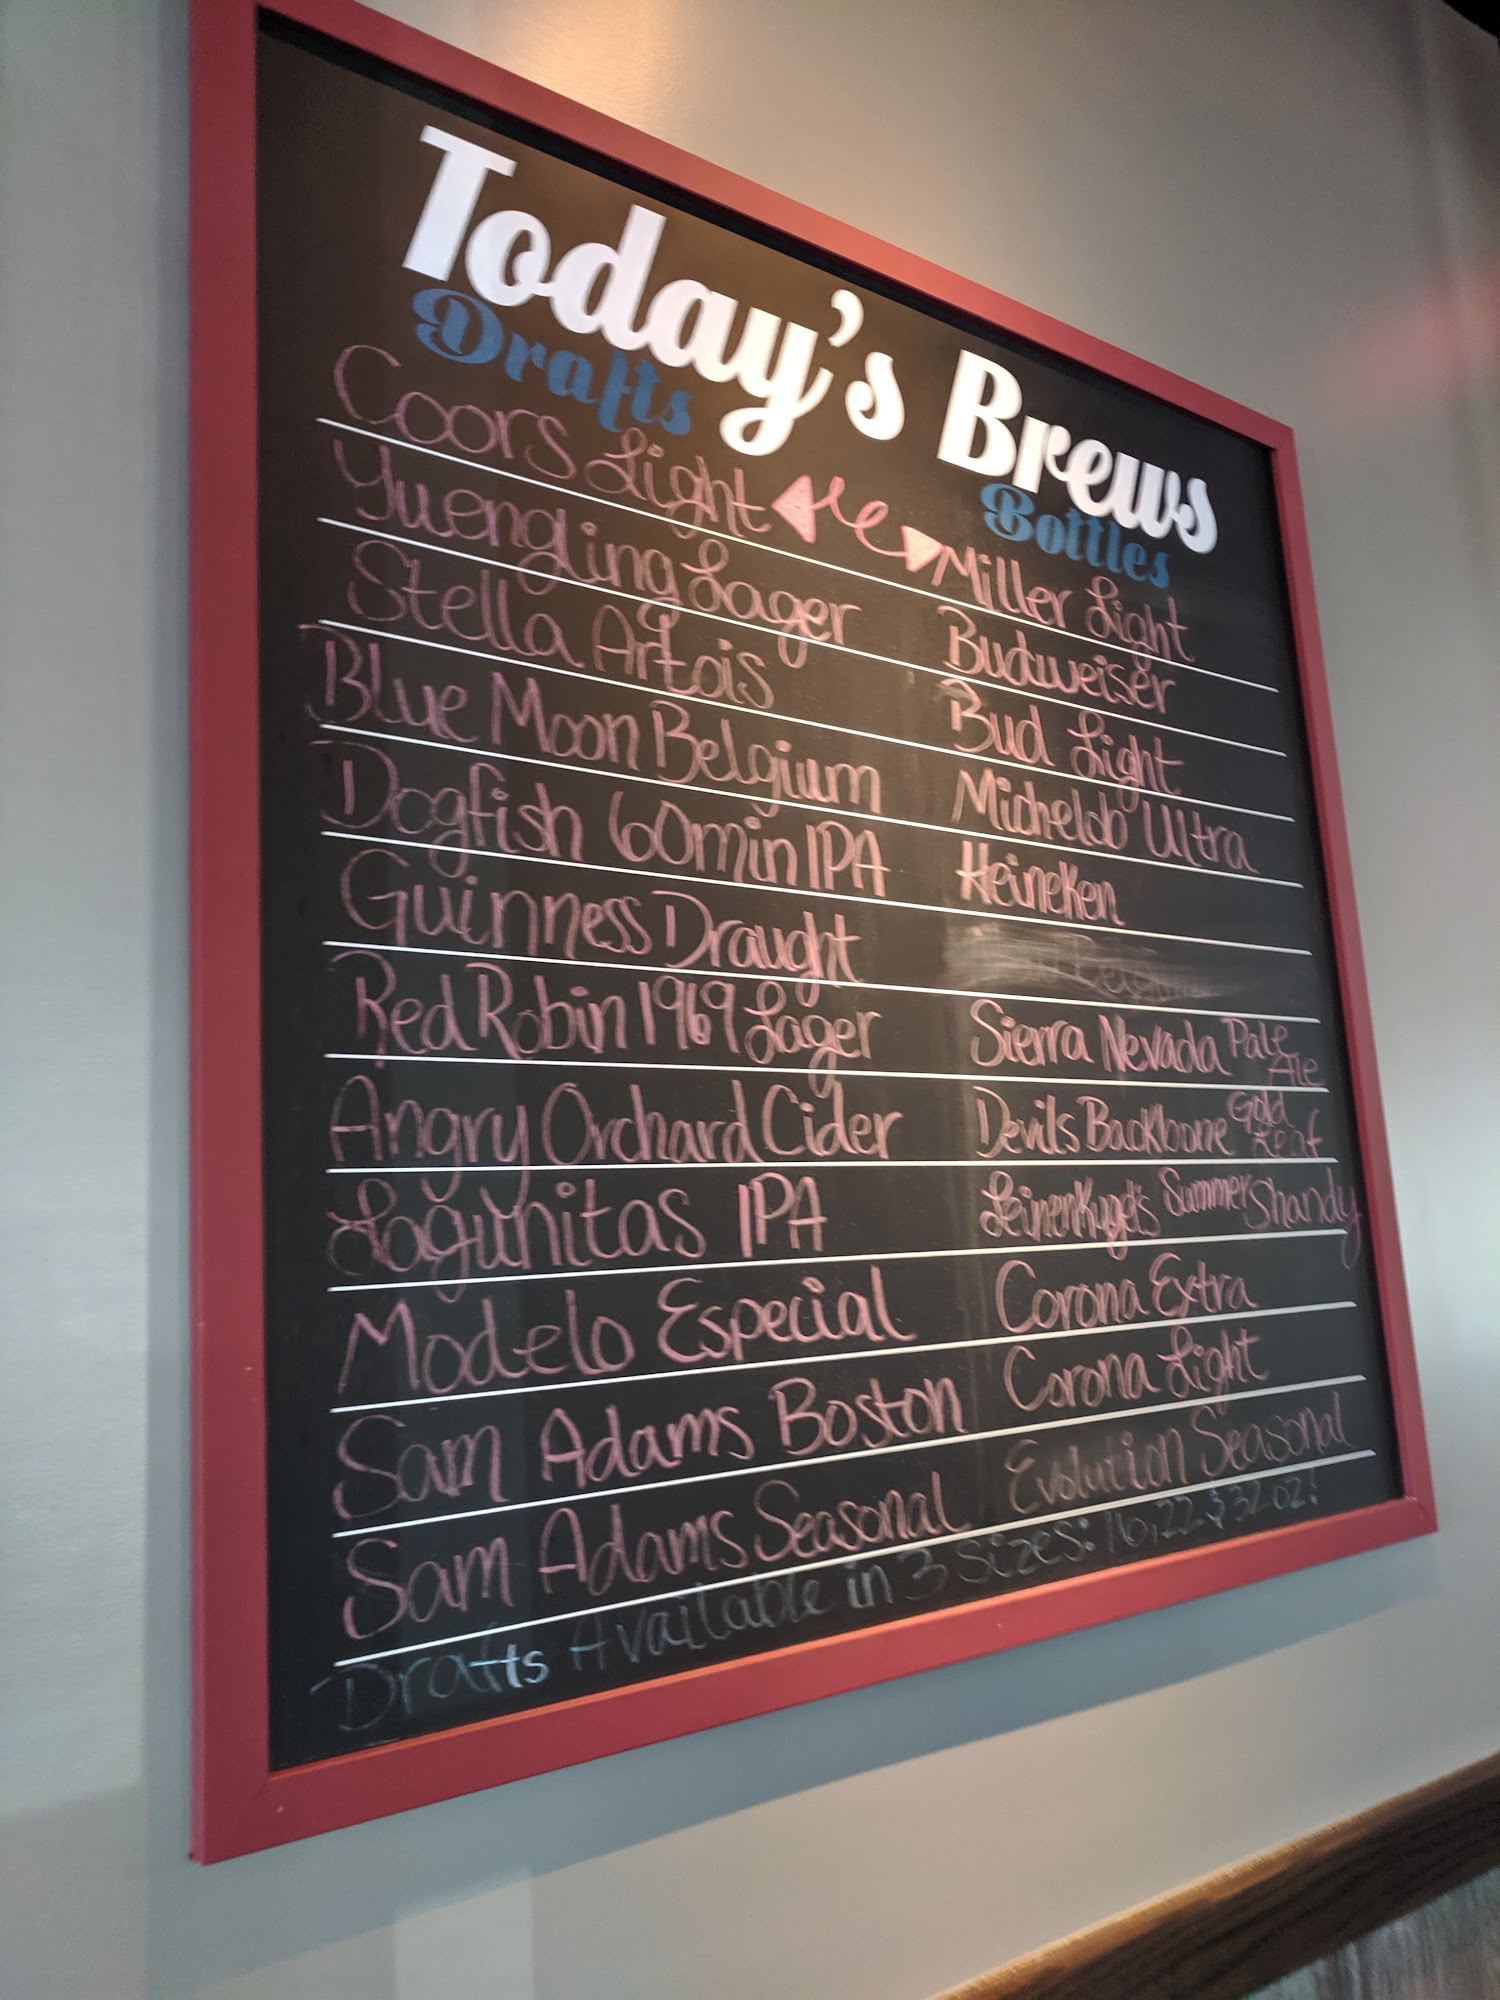 Today's Brews
Drafts
Bottles
Coors Light
Yuengling Lager
Stella Artois
Blue Moon Belgium
Dogfish 60min IPA
Guinness Draught
Red Robin 1969 Lager
Angry Orchard Cider
Lagunitas IPA
Modelo Especial
Sam Adams Boston
Sam Adams Seasonal
Miller Light
Budweiser
Bud Light
Michelob Ultra
Heineken
Sierra Nevada Pale Ale
Devils Backbone Gold Leaf
Leinenkugel's Summer Shandy
Corona Extra
Corona Light
Evolution Seasonal
Drafts Available in 3 Sizes: 16, 22 & 32 oz!